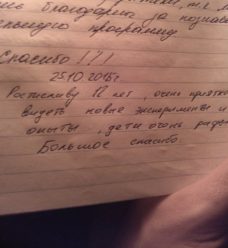 благодарна за познаватель
программу
Спасибо !!!
25.10.2015г.
Ростиславу 12 лет, очень приятно
видеть новые эксперименты и
опыты, дети очень рады
Большое спасибо